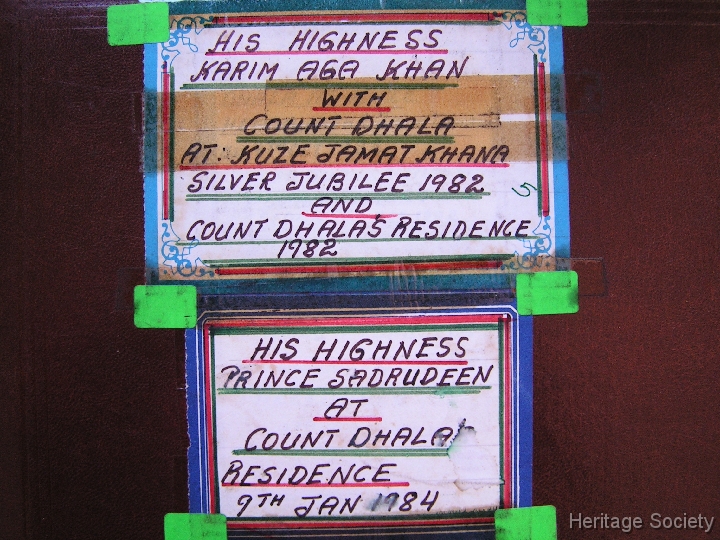 HIS HIGHNESS
KARIM AGA KHAN
WITH
COUNT DHALA
AT: KUZE JAMAT KHANA
SILVER JUBILEE 1982
5
AND
COUNT DHALA'S RESIDENCE
1982
HIS HIGHNESS
PRINCE SADRUDEEN
AT
COUNT DHALA'
RESIDENCE
9TH JAN 1984
Heritage Society